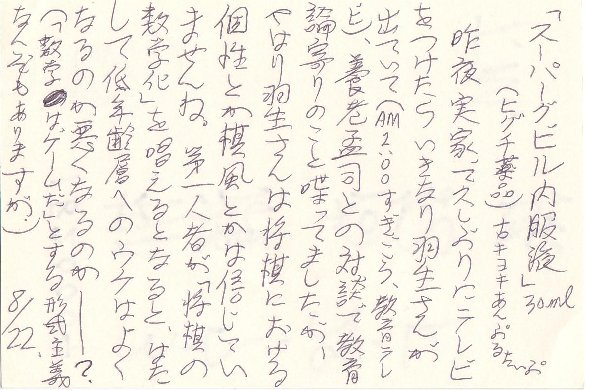 「スーパーグビル内服液」30ml
(ヒグチ薬品) 古キヨキあんぷるたいぷ
昨夜実家で久しぶりにテレビ
をつけたらいきなり羽生さんが
出ていて(AM2:00すぎごろ、教育テレ
ビ)、養老孟司との対談で教育
論寄りのこと喋ってましたが、
やはり羽生さんは将棋における
個性とか棋風とかは信じてい
ませんね。第一人者が「将棋の
数学化」を唱えるとなると、はた
して低年齢層へのウケはよく
なるのか悪くなるのか——?
(「数学はゲームだ」とする形式主義
なんてもありますが。) 8/22.